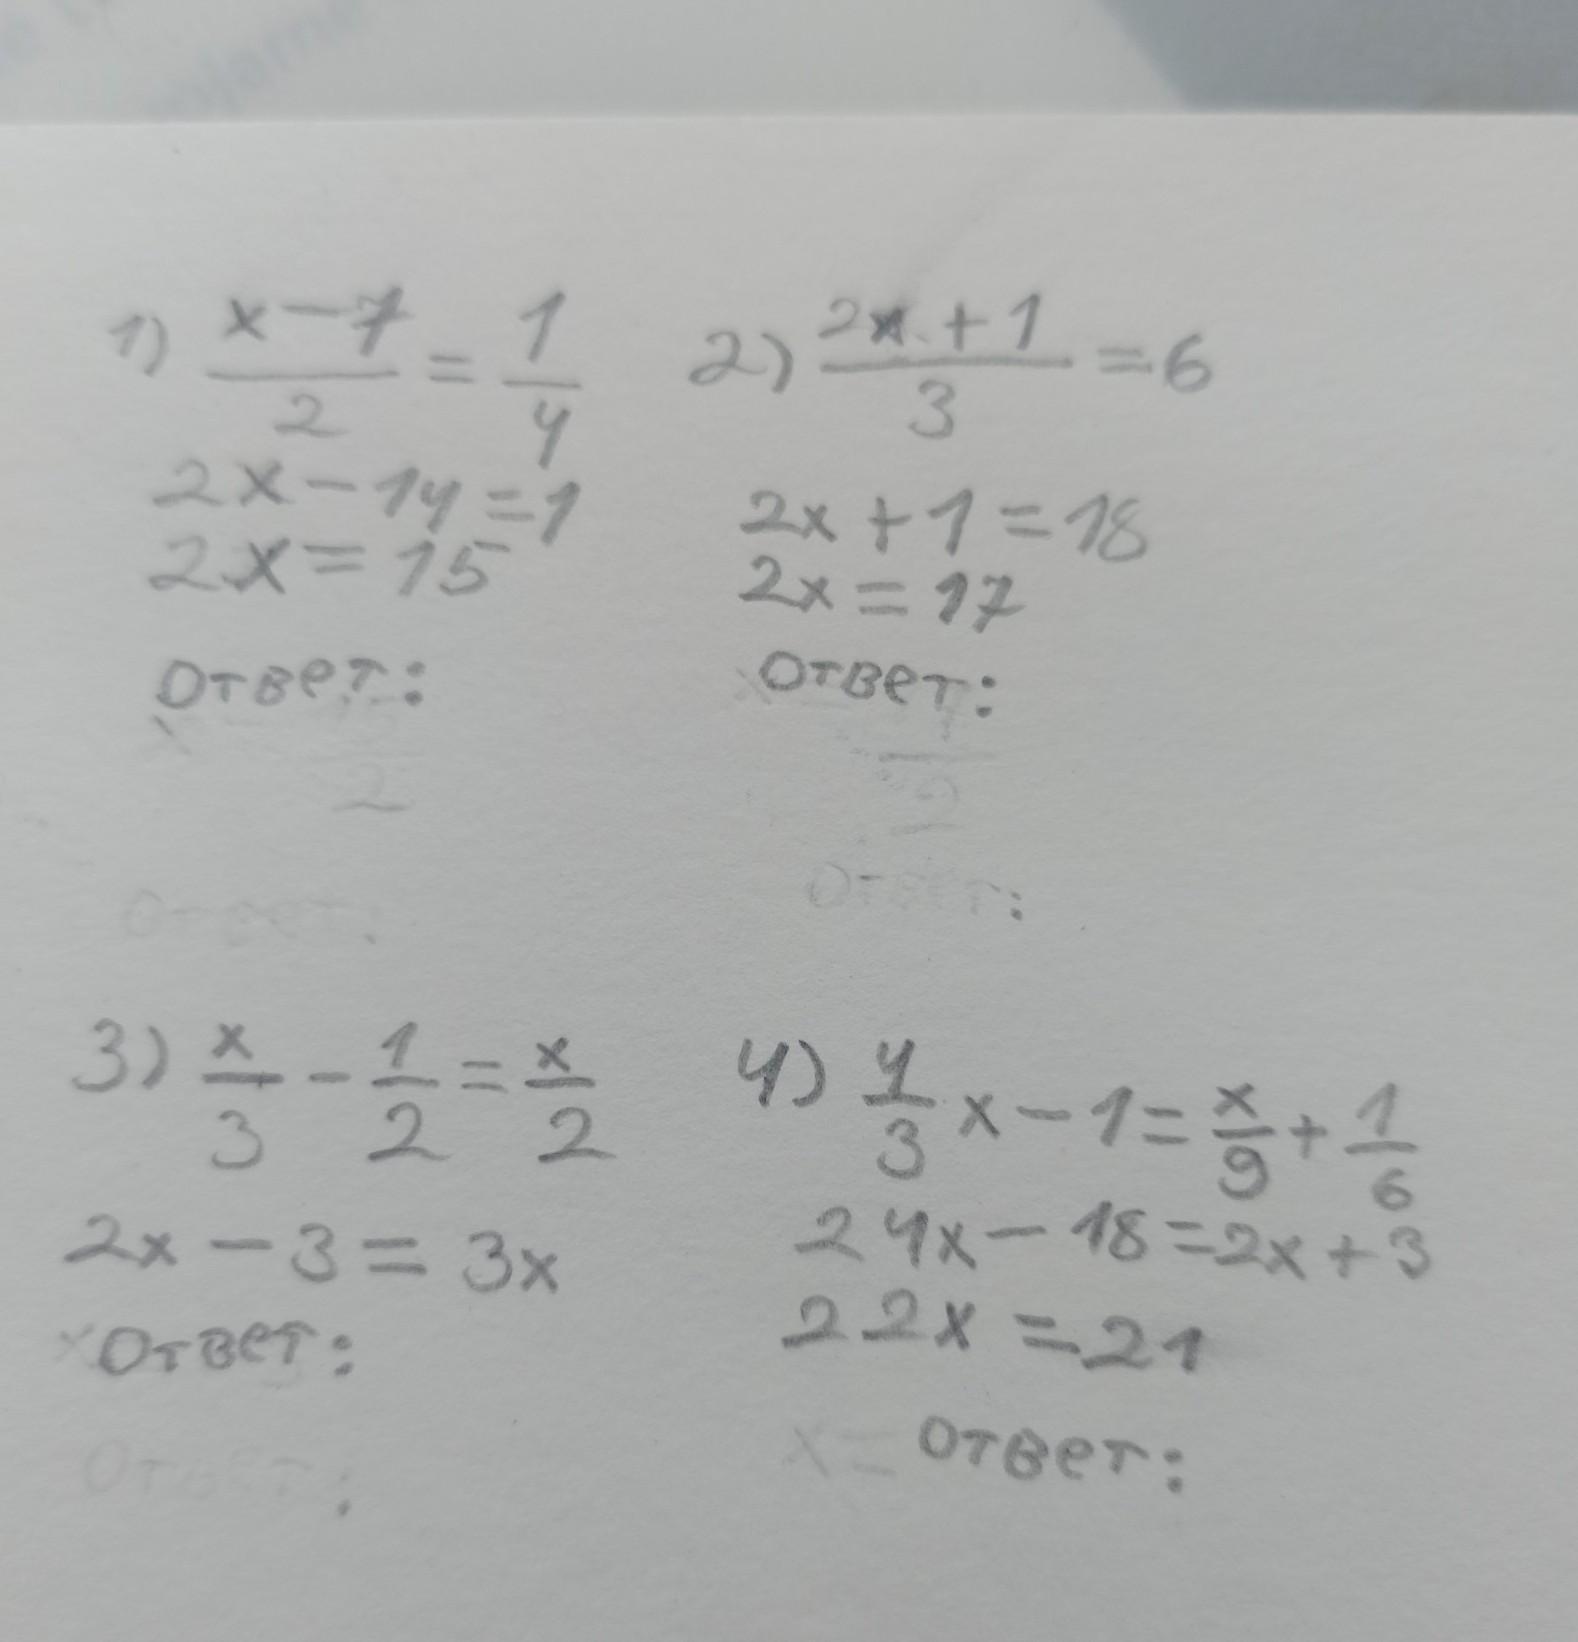 1) (x-7)/2 = 1/4
2x-14=1
2x=15
Ответ:
2) (2x+1)/3 = 6
2x+1=18
2x=17
Ответ:
3) x/3 - 1/2 = x/2
2x-3=3x
Ответ:
4) 4/3 x-1= x/9 + 1/6
24x-18=2x+3
22x=21
Ответ: